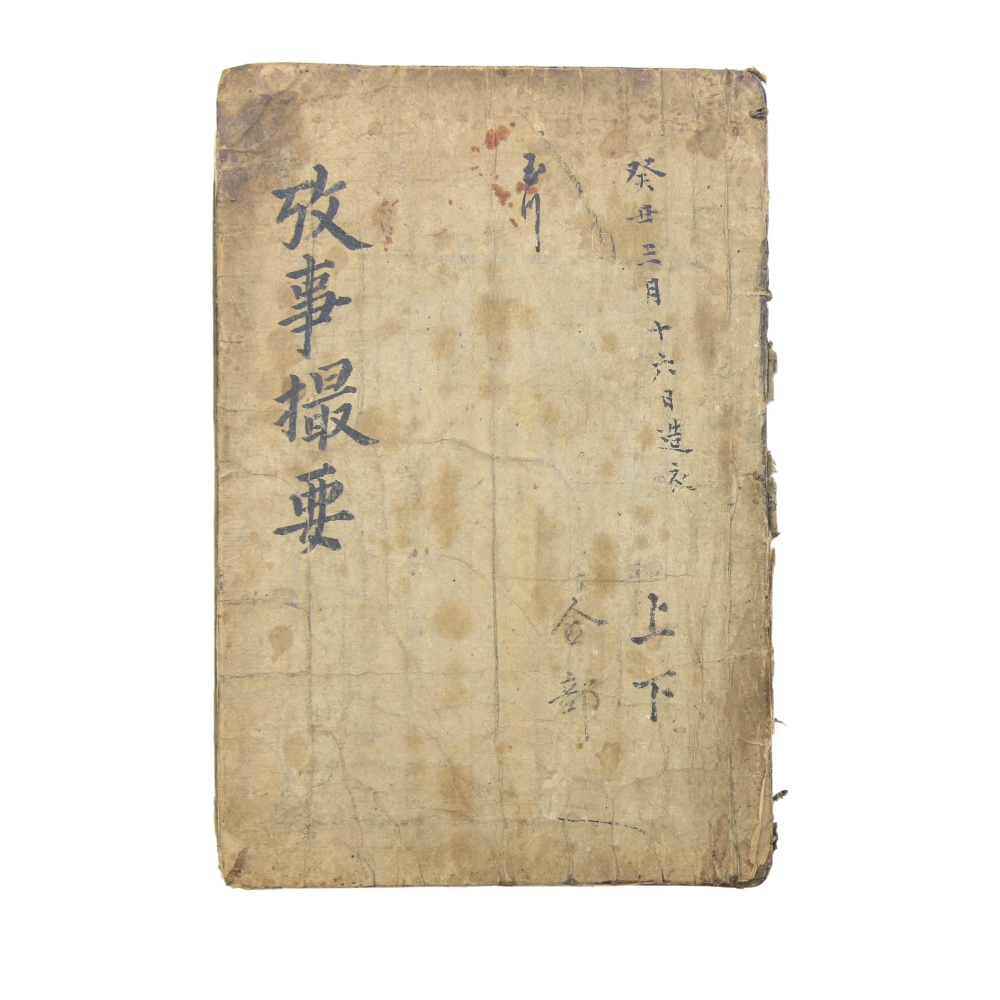 癸丑三月十六日造衣
上下
合部
玉川
攷事撮要